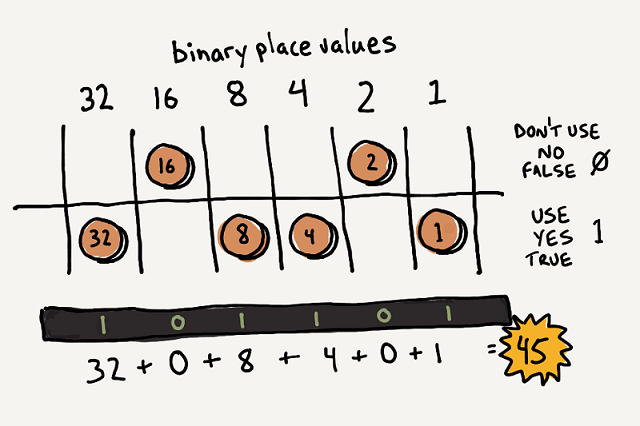 binary place values
32 16 8 4 2 1
16 2
DON'T USE
NO
FALSE 0
32 8 4 1
USE
YES 1
TRUE
1 0 1 1 0 1
32 + 0 + 8 + 4 + 0 + 1 = 45